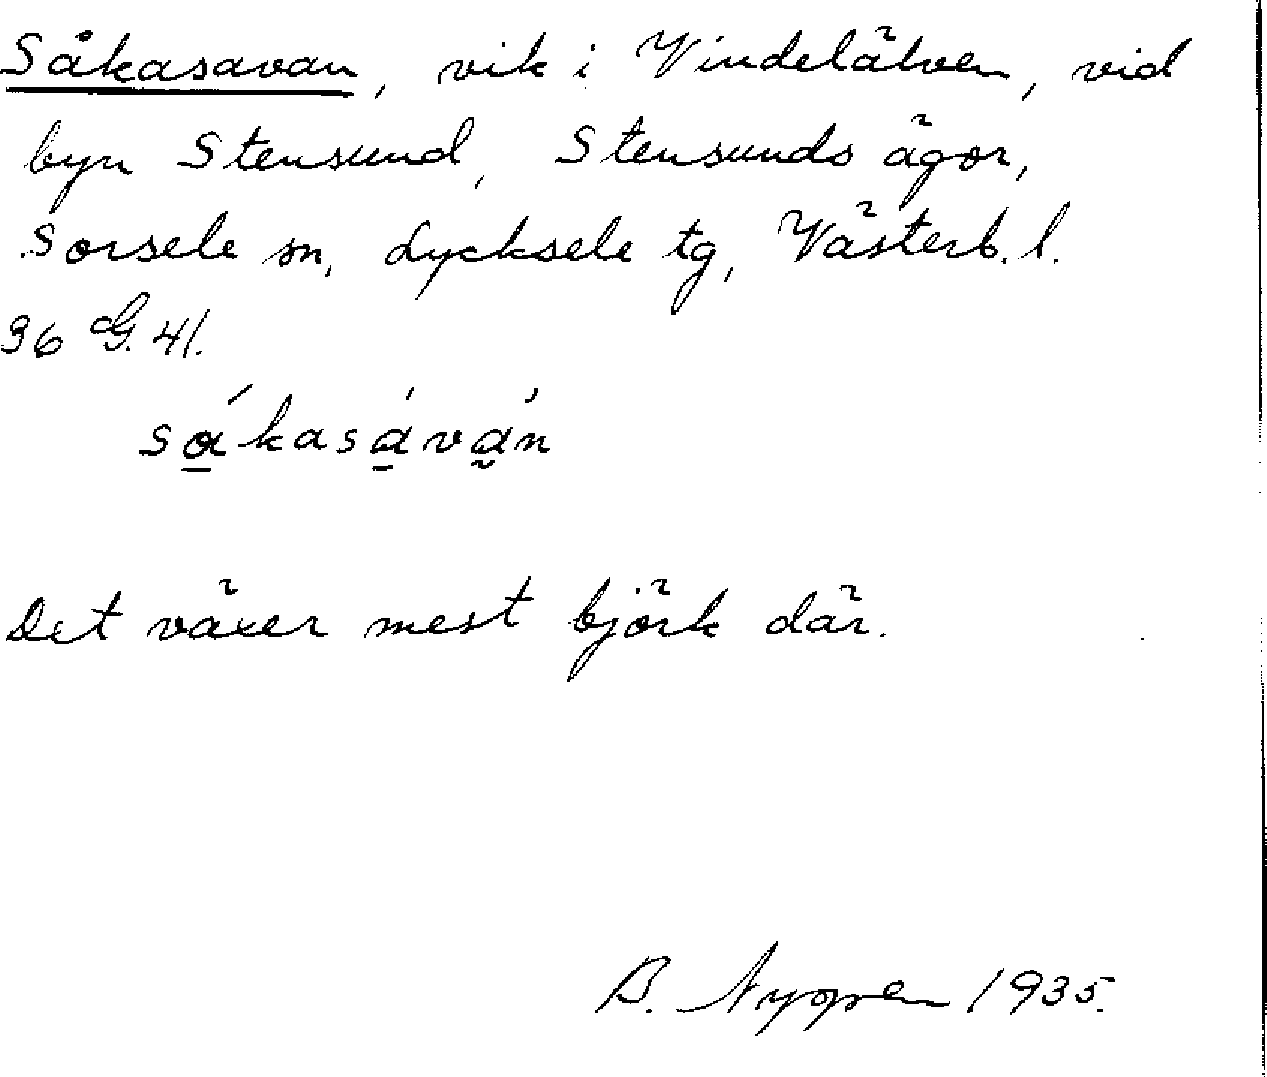 Såkasavan, vik i Vindelälven, vid
byn Stensund, Stensunds ägor,
Sorsele sn, Lycksele tg, Västerb. l.
36 G. 41.
såkasávàn
Det växer mest björk där.
B. Nygren 1935.